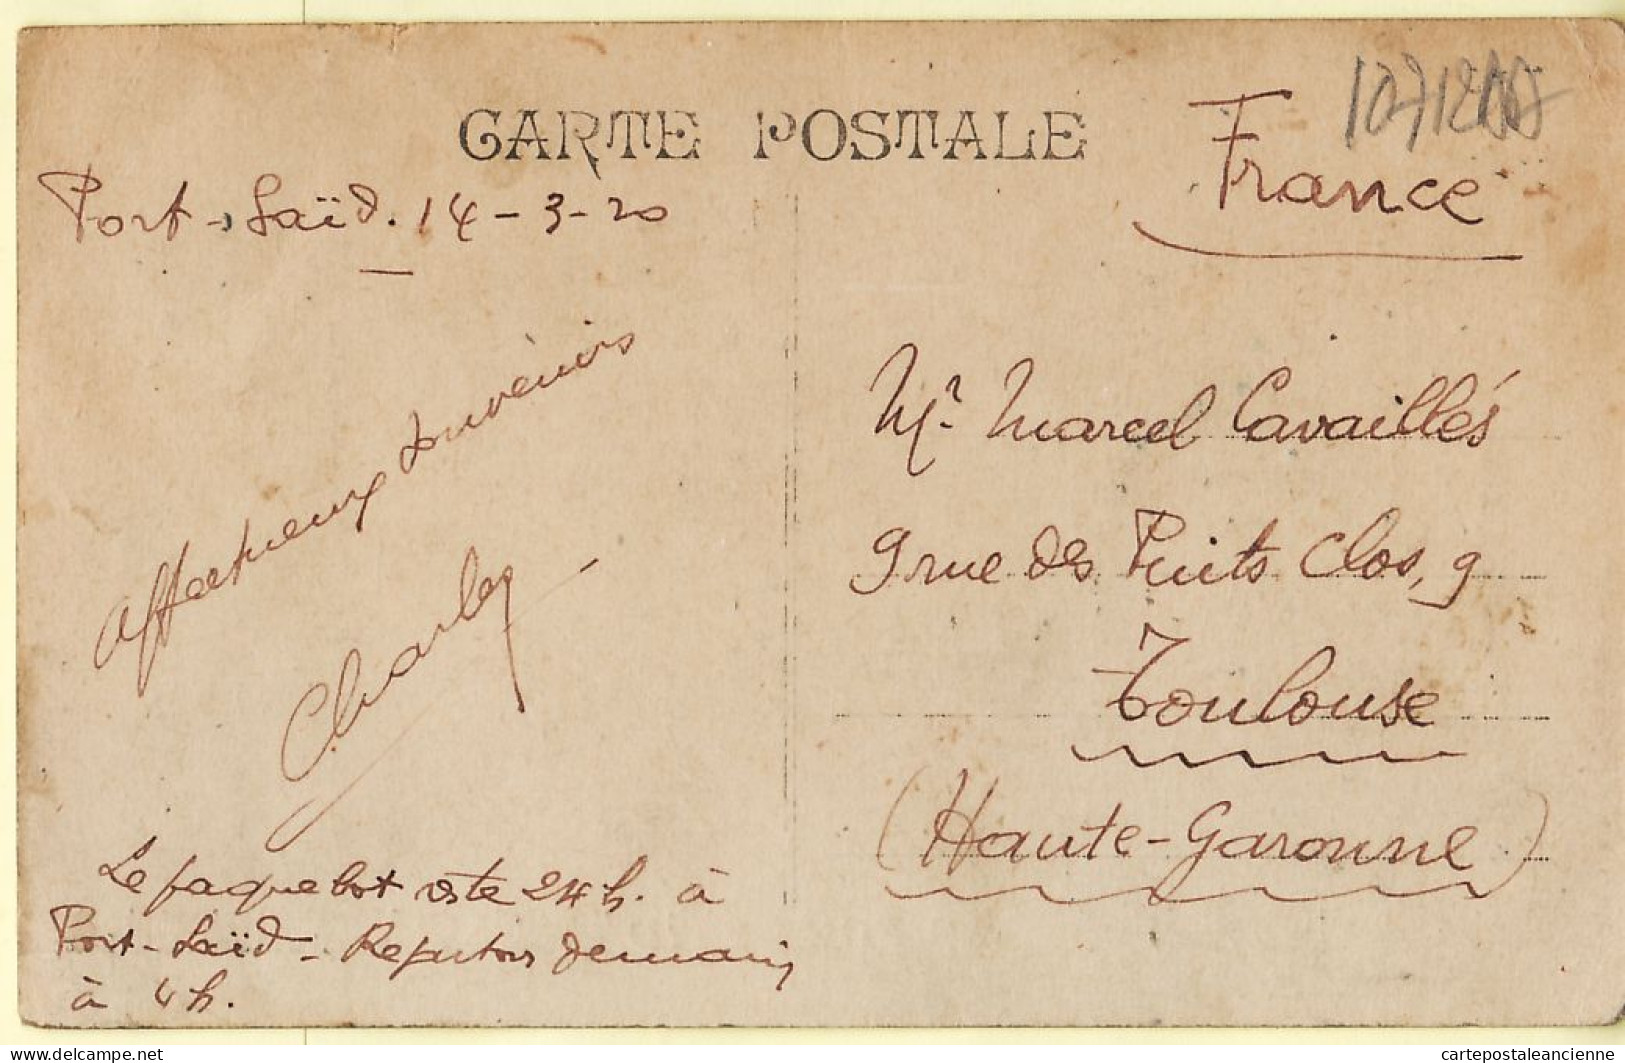 CARTE POSTALE
Port-Saïd. 14-3-20
Affectueux souvenirs
Charley
Le paquebot reste 24 h. à
Port-Saïd - Repartons demain
à 4 h.
France
Mr. Marcel Cavaillés
9 rue des Puits Clos, 9
Toulouse
(Haute-Garonne)
delcampe.net
cartepostaleancienne